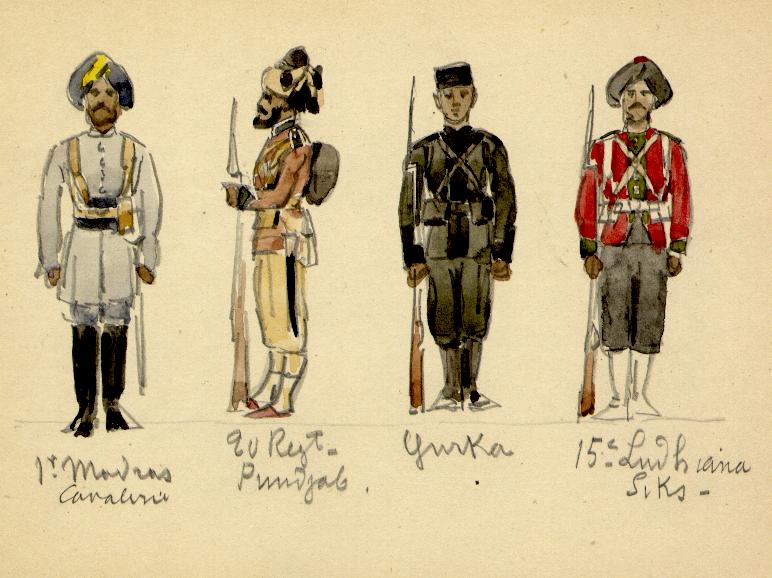 1r Madras
Cavalerie
Regt-
Pundjab.
Gurka
15e Ludhiana
Siks-